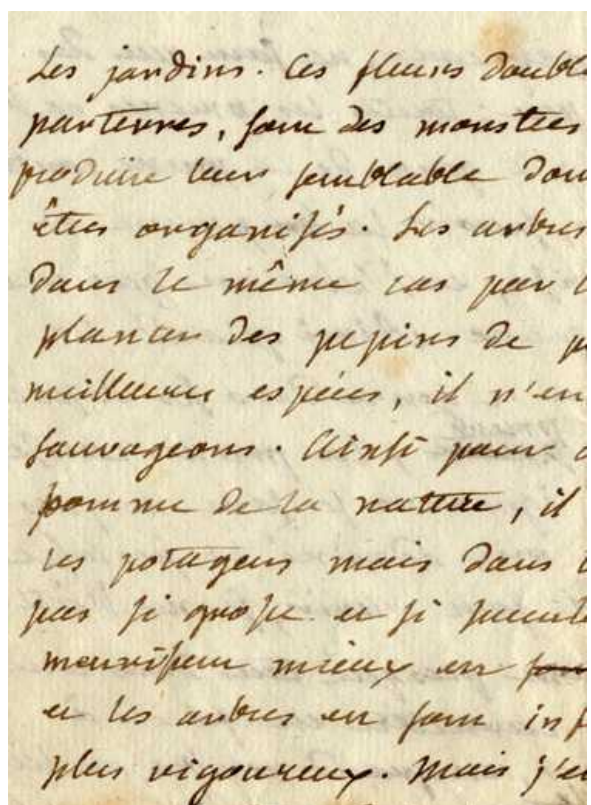 Les jardins. Ces fleurs doubl
parterres, sont des monstres
produire leur semblable don
êtres organisés. Les arbres
dans le même cas par
plantant des pepins de p
meilleures espèces, il n'en
sauvageons. Ainsi pour
pomme de la nature, il
les potagers mais dans
pas si grosse et si succule
nourrissent mieux en
et les arbres en sont inf
plus vigoureux. Mais j'en